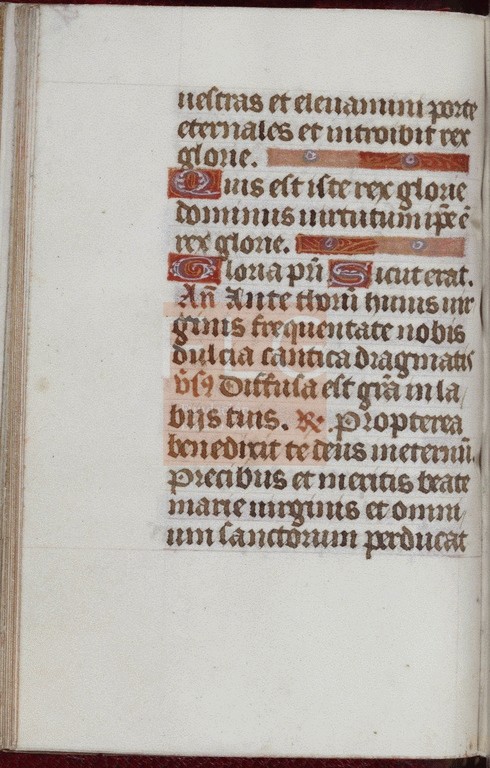 uestras et eleuamini porte
eternales et introibit rex
glorie.
Quis est iste rex glorie
dominus uirtutum ip̄e ē
rex glorie.
Gloria pr̄i Sicut erat.
An̄ Ante thorū huius uir
ginis frequentate nobis
dulcia cantica dragmatis
v̄sꝯ Diffusa est gr̄a in la
biis tuis. R̄. Propterea
benedixit te deus in eternū.
Precibus et meritis beate
marie uirginis et omni
um sanctorum perducat